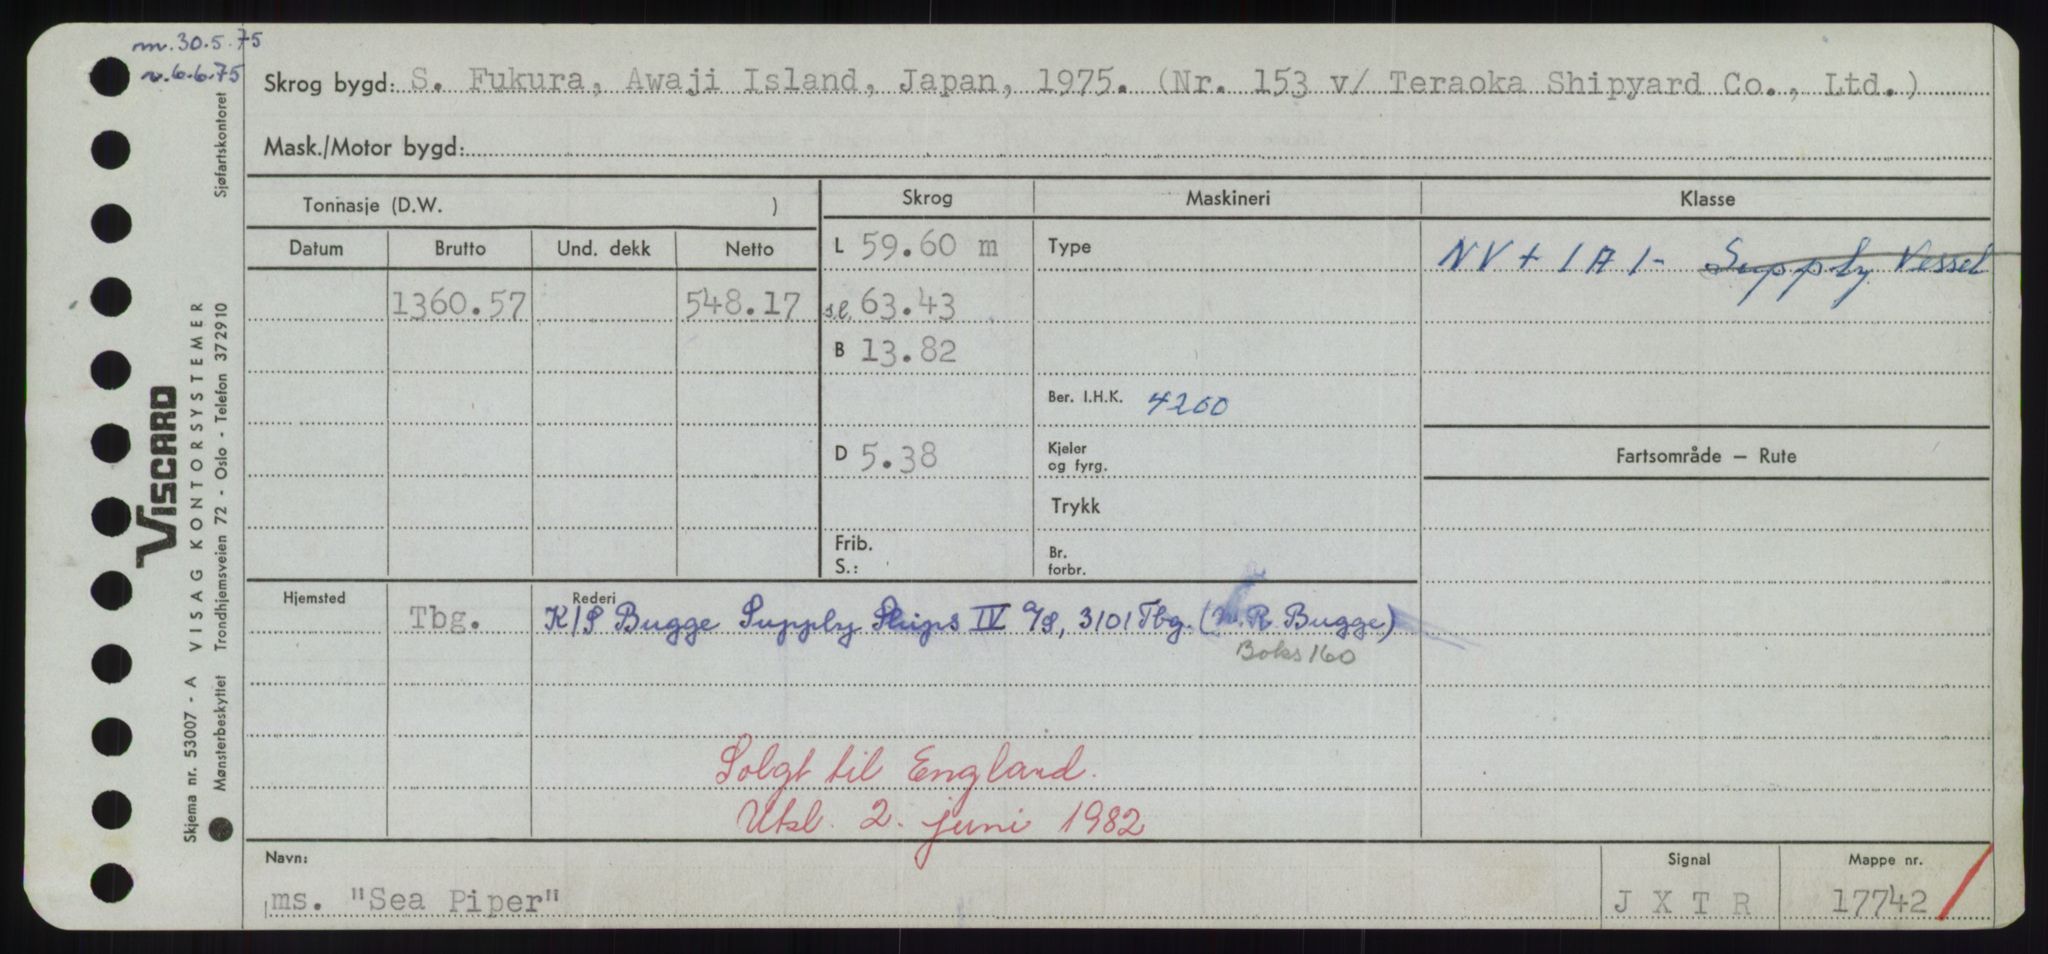 m. 30.5.75
n. 6.6.75
Skrog bygd: S. Fukura, Awaji Island, Japan, 1975. (Nr. 153 v/ Teraoka Shipyard Co., Ltd.)
Mask./Motor bygd:
Tonnasje (D.W. )
Skrog
Maskineri
Klasse
Datum Brutto Und. dekk Netto
L 59.60 m
Type
NV + 1A1- Supply Vessel
1360.57 548.17
s.l. 63.43
B 13.82
Ber. I.H.K. 4200
D 5.38
Kjeler
og fyrg.
Fartsområde – Rute
Trykk
Frib.
S.:
Br.
forbr.
Hjemsted
Rederi
Tbg. K/S Bugge Supply Ships IV A/S, 3101 Tbg. (N. R. Bugge)
Boks 160
Solgt til England.
Utsl. 2. juni 1982
Navn:
Signal
Mappe nr.
ms. "Sea Piper"
J X T R
17742
VISCARD
Skjema nr. 53007 - A VISAG KONTORSYSTEMER
Mønsterbeskyttet Trondhjemsveien 72 - Oslo - Telefon 372910 Sjøfartskontoret